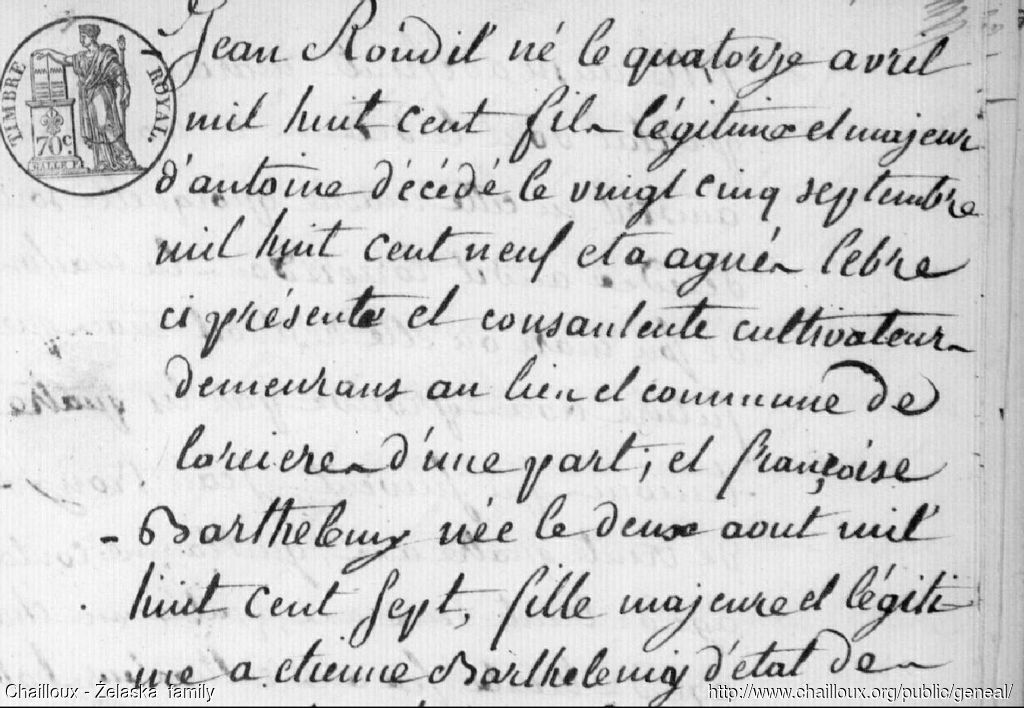 TIMBRE ROYAL
70c
Jean Roudil né le quatorze avril
mil huit cent fils légitime et majeur
d'antoine décédé le vingt cinq septembre
mil huit cent neuf et a agnés lebre
ci présente et consantente cultivateurs
demeurans au lieu et commune de
d'une part, et françoise
Barthelemy née le deux aout mil
huit cent sept, fille majeure et légiti
me a etienne Barthelemy d'état de
Chailloux - Zelaska family
http://www.chailloux.org/public/geneal/